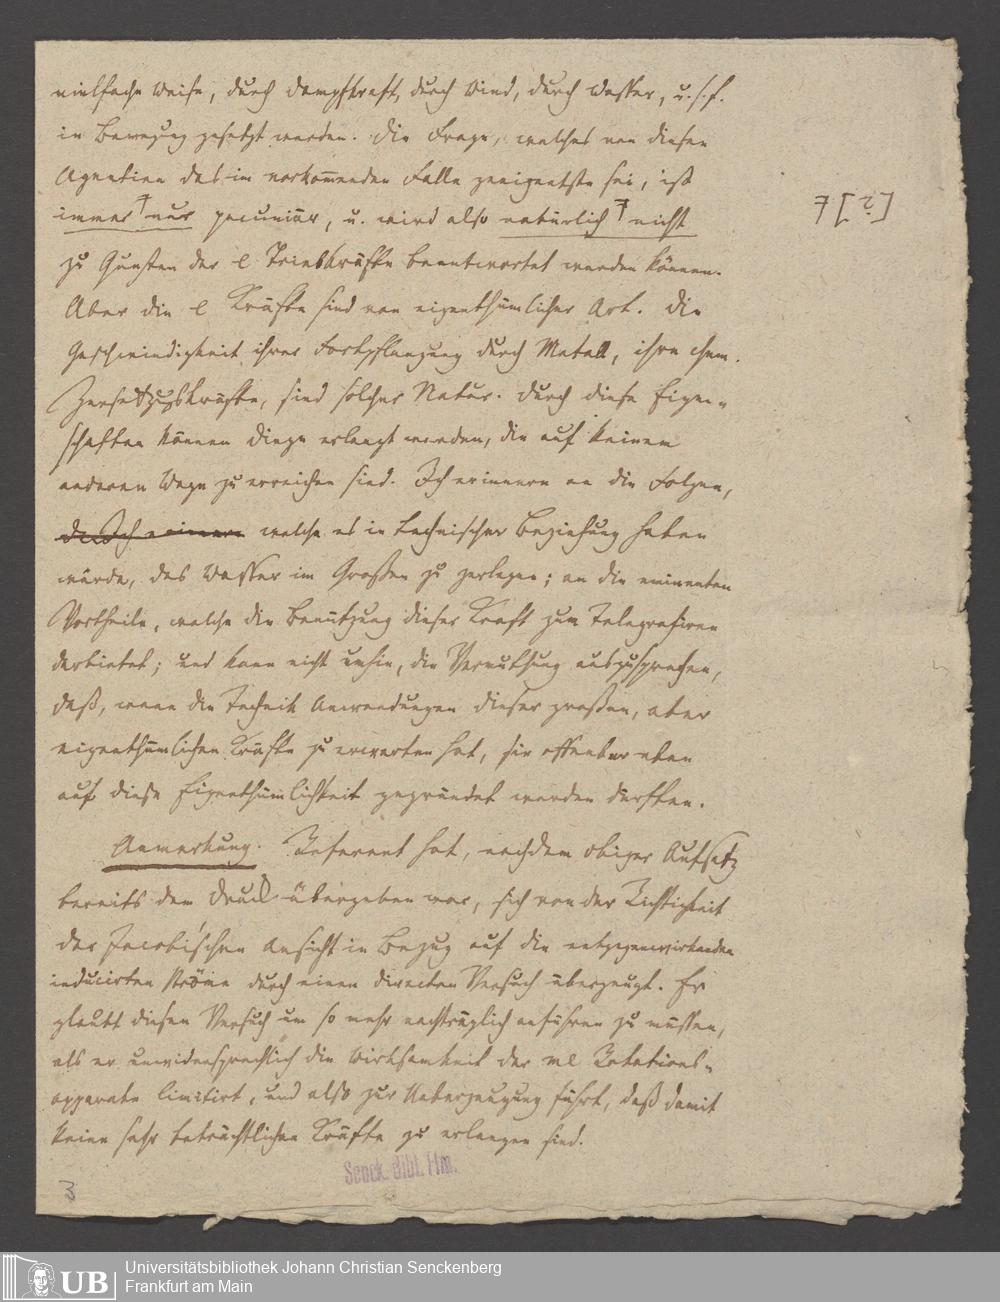 vielfache Weise, durch Dampfkraft, durch Wind, durch Wasser, u. s. f.
in Bewegung gesetzt werden. Die Frage, welches von diesen
Agentien das im vorkommenden Falle geeignetste sei, ist
immer nur pecuniär, u. wird also natürlich nicht
[?]
zu Gunsten der e Triebkräfte beantwortet werden können.
Aber die e Kräfte sind von eigenthümlicher Art. Die
Geschwindigkeit ihrer Fortpflanzung durch Metall, ihre chem.
Zersetzungskräfte, sind solcher Natur. Durch diese Eigen-
schaften können Dinge erlangt werden, die auf keinem
anderen Wege zu erreichen sind. Ich erinnere an die Folgen,
welche es in technischer Beziehung haben
würde, das Wasser im Großen zu zerlegen; an die eminenten
Vortheile, welche die Benützung dieser Kraft zum Telegrafiren
darbietet; und kann nicht umhin, die Vermuthung auszusprechen,
daß, wenn die Technik Anwendungen dieser großen, aber
eigenthümlichen Kräfte zu erwarten hat, sie offenbar eben
auf diese Eigenthümlichkeit gegründet werden dürften.
Anmerkung. Referent hat, nachdem obiger Aufsatz
bereits dem Druck übergeben war, sich von der Richtigkeit
der Jacobi'schen Ansicht in Bezug auf die entgegenwirkenden
inducirten Ströme durch einen directen Versuch überzeugt. Er
glaubt diesen Versuch um so mehr nachträglich anführen zu müssen,
als er unwidersprechlich die Wirksamkeit der me Rotations-
apparate limitirt, und also zur Ueberzeugung führt, daß damit
keine sehr beträchtlichen Kräfte zu erlangen sind.
Senck. Bibl. Ffm.
3
UB
Universitätsbibliothek Johann Christian Senckenberg
Frankfurt am Main